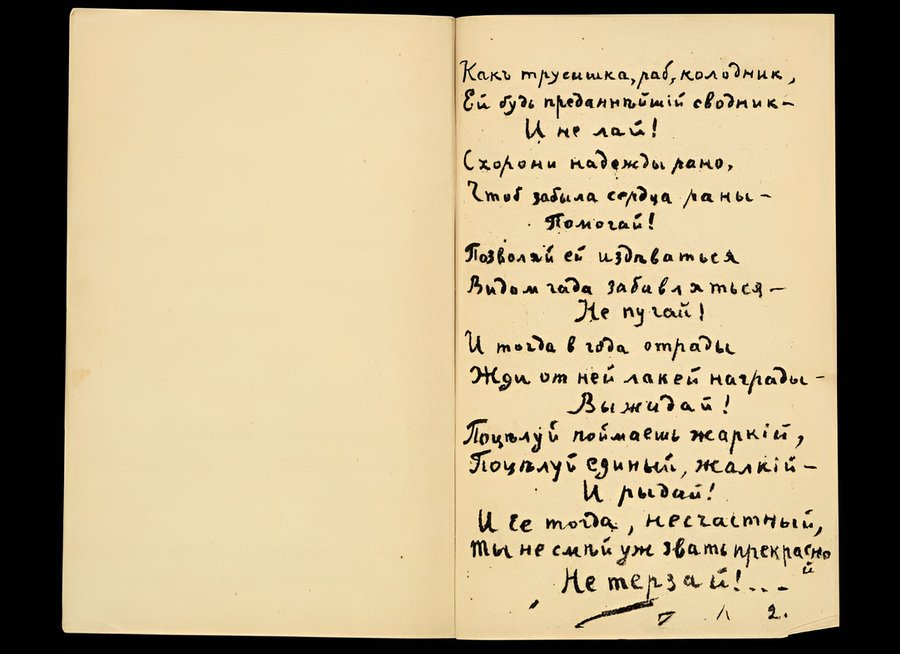 Какъ трусишка, раб, колодник,
Ей будь преданнѣйшій сводник –
И не лай!
Схорони надежды рано,
Чтоб забыла сердца раны –
Помогай!
Позволяй ей издѣваться
Видом гада забавляться –
Не пугай!
И тогда в года отрады
Жди от ней лакей награды –
Выжидай!
Поцѣлуй поймаешь жаркій,
Поцѣлуй единый, жалкій –
И рыдай!
И ее тогда, несчастный,
Ты не смѣй уж звать прекрасной
Не терзай!...
2.